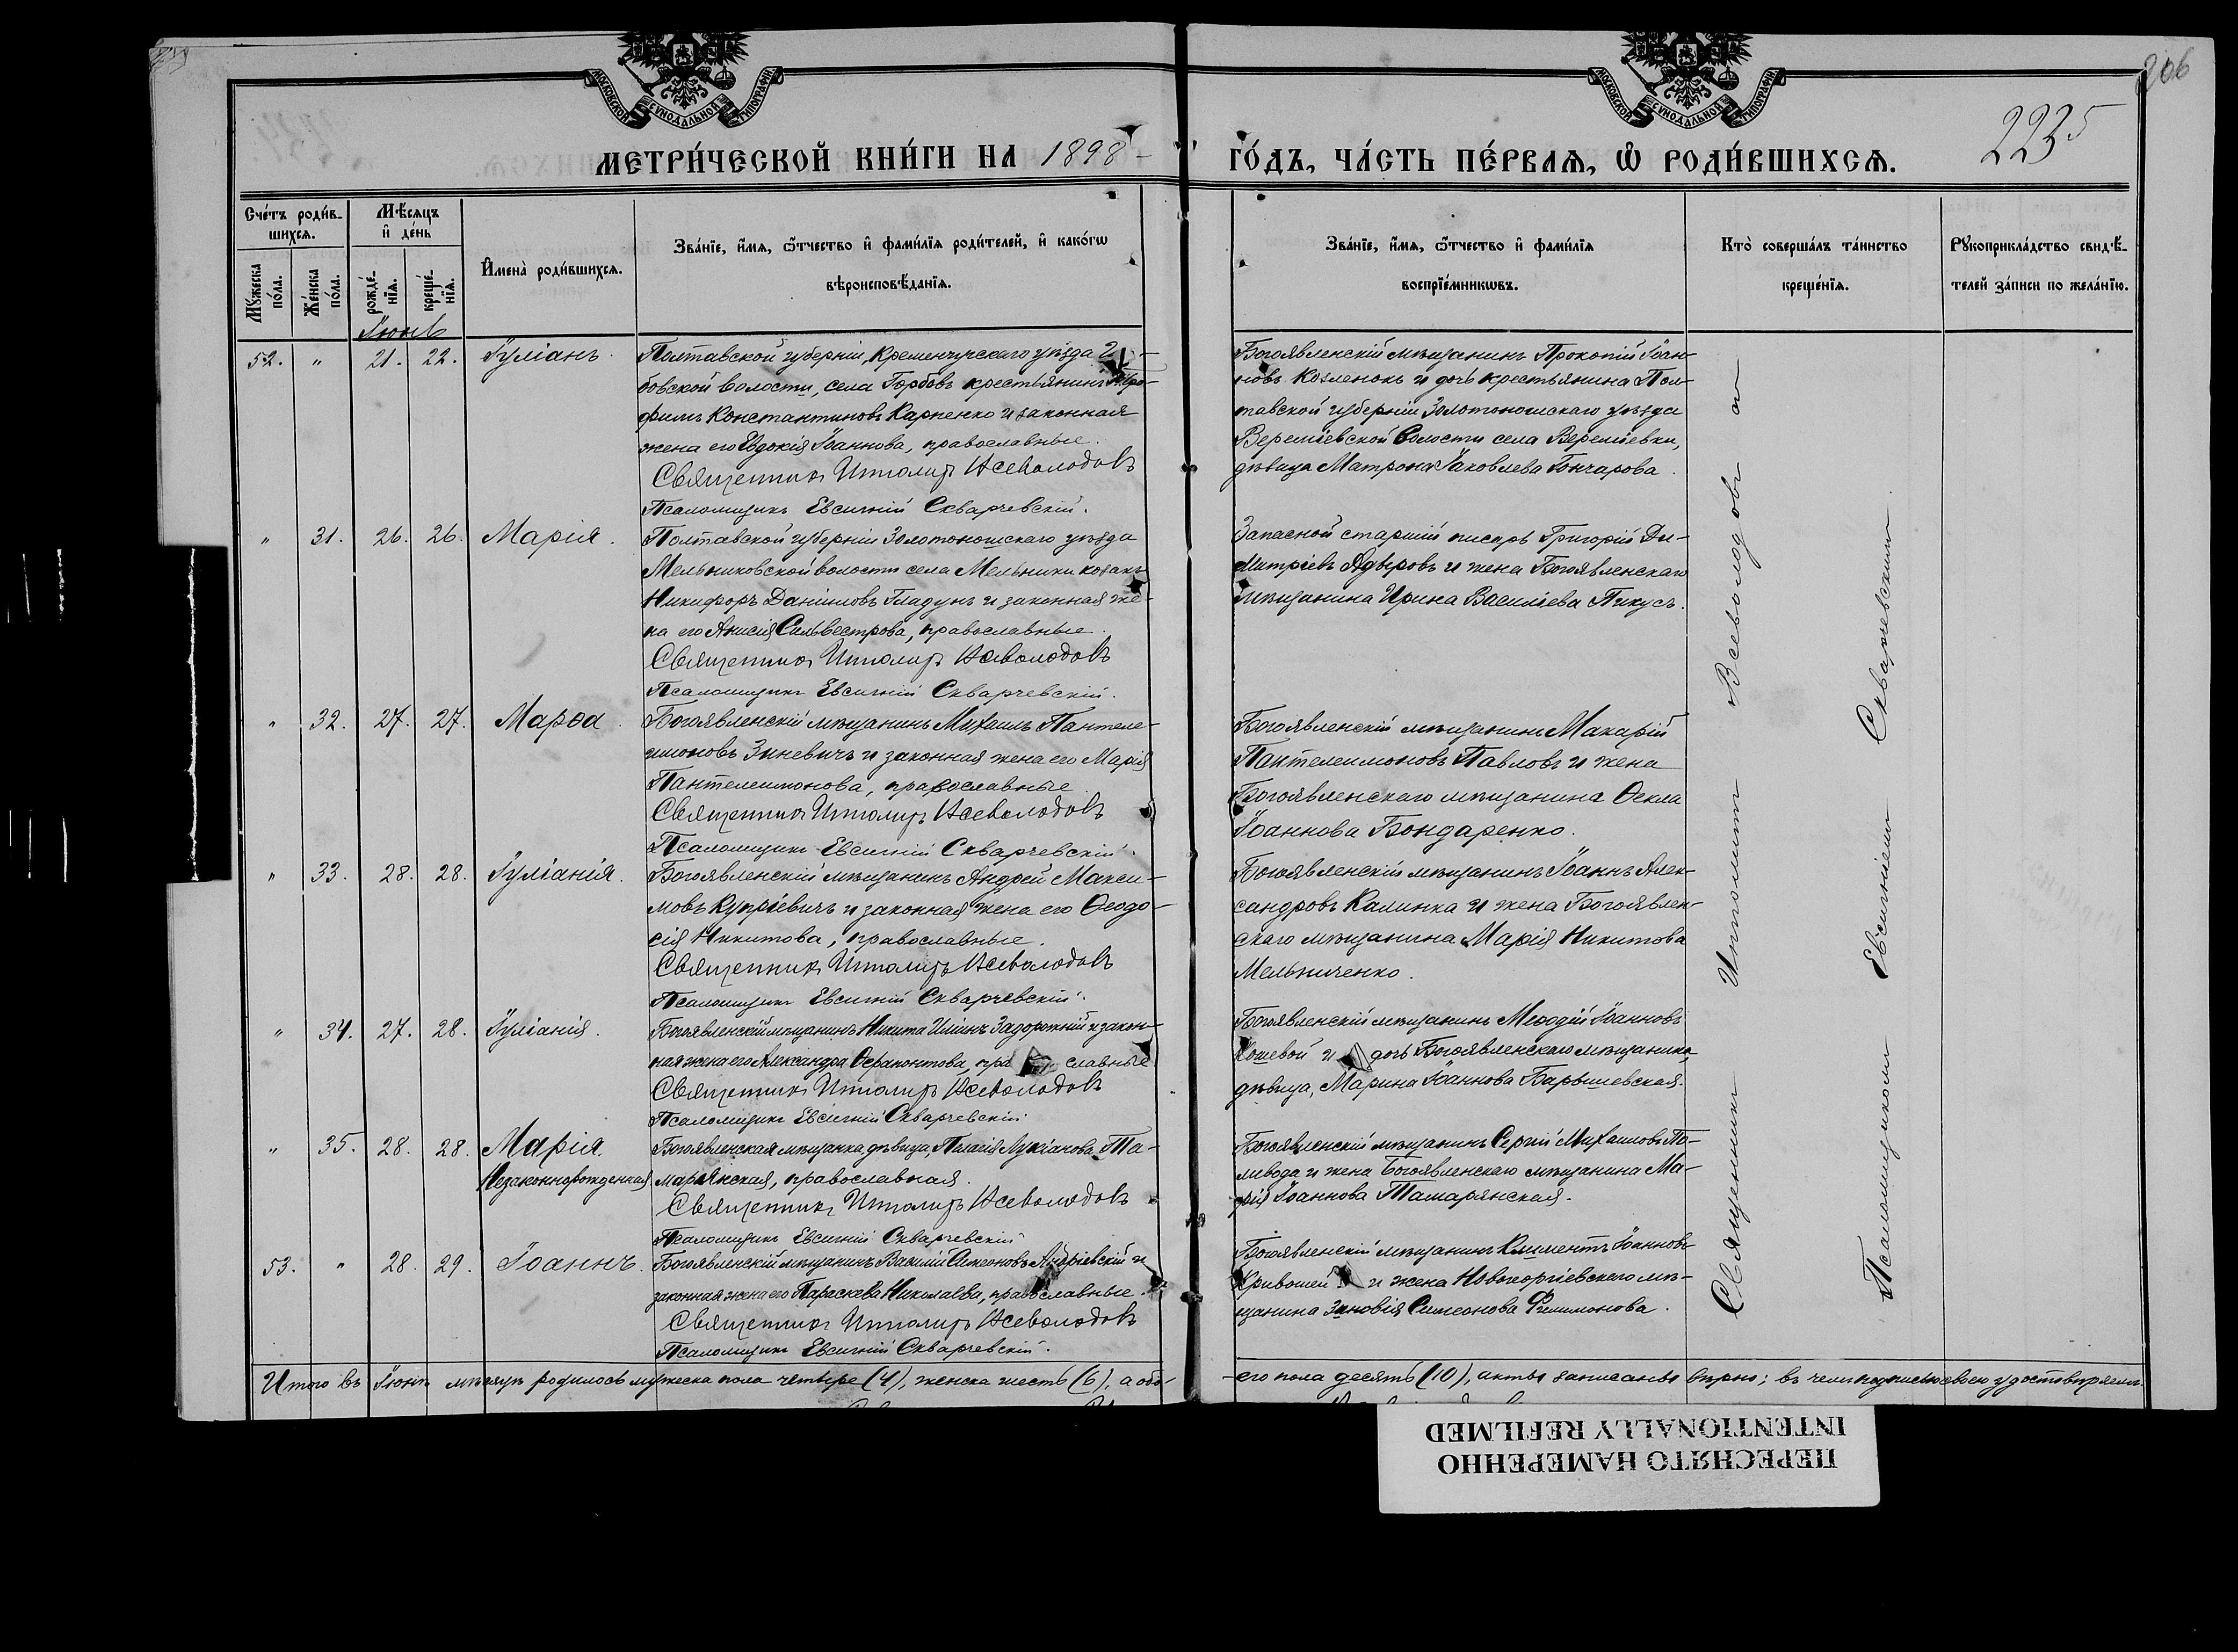 206
2235
МОСКОВСКОЙ СѴНОДАЛЬНОЙ ТИПОГРАФІИ
МОСКОВСКОЙ СѴНОДАЛЬНОЙ ТИПОГРАФІИ
МЕТРИ́ЧЕСКОЙ КНИ́ГИ НА 1898 ГО́ДЪ, ЧА́СТЬ ПЕ́РВАѦ, Ѽ РОДИ́ВШИХСѦ.
Сче́тъ роди́в-
шихсѧ.
Мѣ́сѧцъ
и҆ де́нь
Мꙋ́жеска по́ла.
Же́нска по́ла.
рожде́-
нїѧ.
креще́-
нїѧ.
И҆мена̀ роди́вшихсѧ.
Зва́нїе, и҆́мѧ, ѻ҆́тчество и҆ фами́лїѧ роди́телей, и҆ како́гѡ
вѣроисповѣ́данїѧ.
Зва́нїе, и҆́мѧ, ѻ҆́тчество и҆ фами́лїѧ
воспрїе́мникѡвъ.
Кто̀ соверша́лъ та́инство
креще́нїѧ.
Рꙋкоприкла́дство свидѣ́-
телей за́писи по жела́нїю.
Іюнь
52. " 21. 22. Іуліанъ.
Полтавской губерніи, Кременчугскаго уѣзда
бовской волости, села Горбовъ крестьянинъ
фимъ Константиновъ Карпенко и законная
жена его Евдокія Іоаннова, православные.
Священникъ Ипполитъ Всеволодовъ
Псаломщикъ Евсигній Скварчевскій.
Богоявленскій мѣщанинъ Прокопій Іоан-
новъ Козленокъ и дочь крестьянина Пол-
тавской губерніи Золотоношскаго уѣзда
Вереміевской волости села Вереміевки,
дѣвица Матрона Іаковлева Гончарова.
" 31. 26. 26. Марія.
Полтавской губерніи Золотоношскаго уѣзда
Мельниковской волости села Мельники козакъ
Никифоръ Даніиловъ Гладунъ и законная же-
на его Анисія Сильвестрова, православные.
Священникъ Ипполитъ Всеволодовъ
Псаломщикъ Евсигній Скварчевскій.
Запасной старшій писарь Григорій Ди-
митріевъ Адыровъ и жена Богоявленскаго
мѣщанина Ирина Василіева Пикусъ.
" 32. 27. 27. Марѳа.
Богоявленскій мѣщанинъ Михаилъ Пантеле-
имоновъ Зиневичъ и законная жена его Марія
Пантелеимонова, православные.
Священникъ Ипполитъ Всеволодовъ
Псаломщикъ Евсигній Скварчевскій.
Богоявленскій мѣщанинъ Макарій
Пантелеимоновъ Павловъ и жена
Богоявленскаго мѣщанина Ѳекла
Іоаннова Бондаренко.
" 33. 28. 28. Іуліанія.
Богоявленскій мѣщанинъ Андрей Макси-
мовъ Купріевичъ и законная жена его Ѳеодо-
сія Никитова, православные.
Священникъ Ипполитъ Всеволодовъ
Псаломщикъ Евсигній Скварчевскій.
Богоявленскій мѣщанинъ Іоаннъ Алек-
сандровъ Калинка и жена Богоявлен-
скаго мѣщанина Марія Никитова
Мельниченко.
" 34. 27. 28. Іуліанія.
Богоявленскій мѣщанинъ Никита Иліинъ Задорожній и закон-
ная жена его Александра Ѳерапонтова, православные
Священникъ Ипполитъ Всеволодовъ
Псаломщикъ Евсигній Скварчевскій.
Богоявленскій мѣщанинъ Меѳодій Іоанновъ
Кошевой и дочь Богоявленскаго мѣщанина,
дѣвица, Марина Іоаннова Барвишевская.
" 35. 28. 28. Марія.
Незаконнорожденная
Богоявленская мѣщанка, дѣвица, Пелагія Лукіанова Та-
марянская, православная.
Священникъ Ипполитъ Всеволодовъ
Псаломщикъ Евсигній Скварчевскій
Богоявленскій мѣщанинъ Сергій Михаиловъ По-
ливода и жена Богоявленскаго мѣщанина Ма-
рія Іоаннова Тамарянская.
53. " 28. 29. Іоаннъ.
Богоявленскій мѣщанинъ Василій Симеоновъ Андріевскій и
законная жена его Параскева Николаева, православные.
Священникъ Ипполитъ Всеволодовъ
Псаломщикъ Евсигній Скварчевскій.
Богоявленскій мѣщанинъ Климентъ Іоанновъ
Кривошей и жена Новогеоргіевскаго мѣ-
щанина Зиновія Симеонова Филимонова.
Священникъ Ипполитъ Всеволодовъ и
Псаломщикомъ Евсигніемъ Скварчевскимъ
Итого въ Іюнѣ мѣсяцѣ родилось мужеска пола четыре (4), женска шесть (6), а обо-
-его пола десять (10), акты записаны вѣрно; въ чемъ подписью своею удостовѣряемъ.
ПЕРЕСНЯТО НАМЕРЕННО
INTENTIONALLY REFILMED